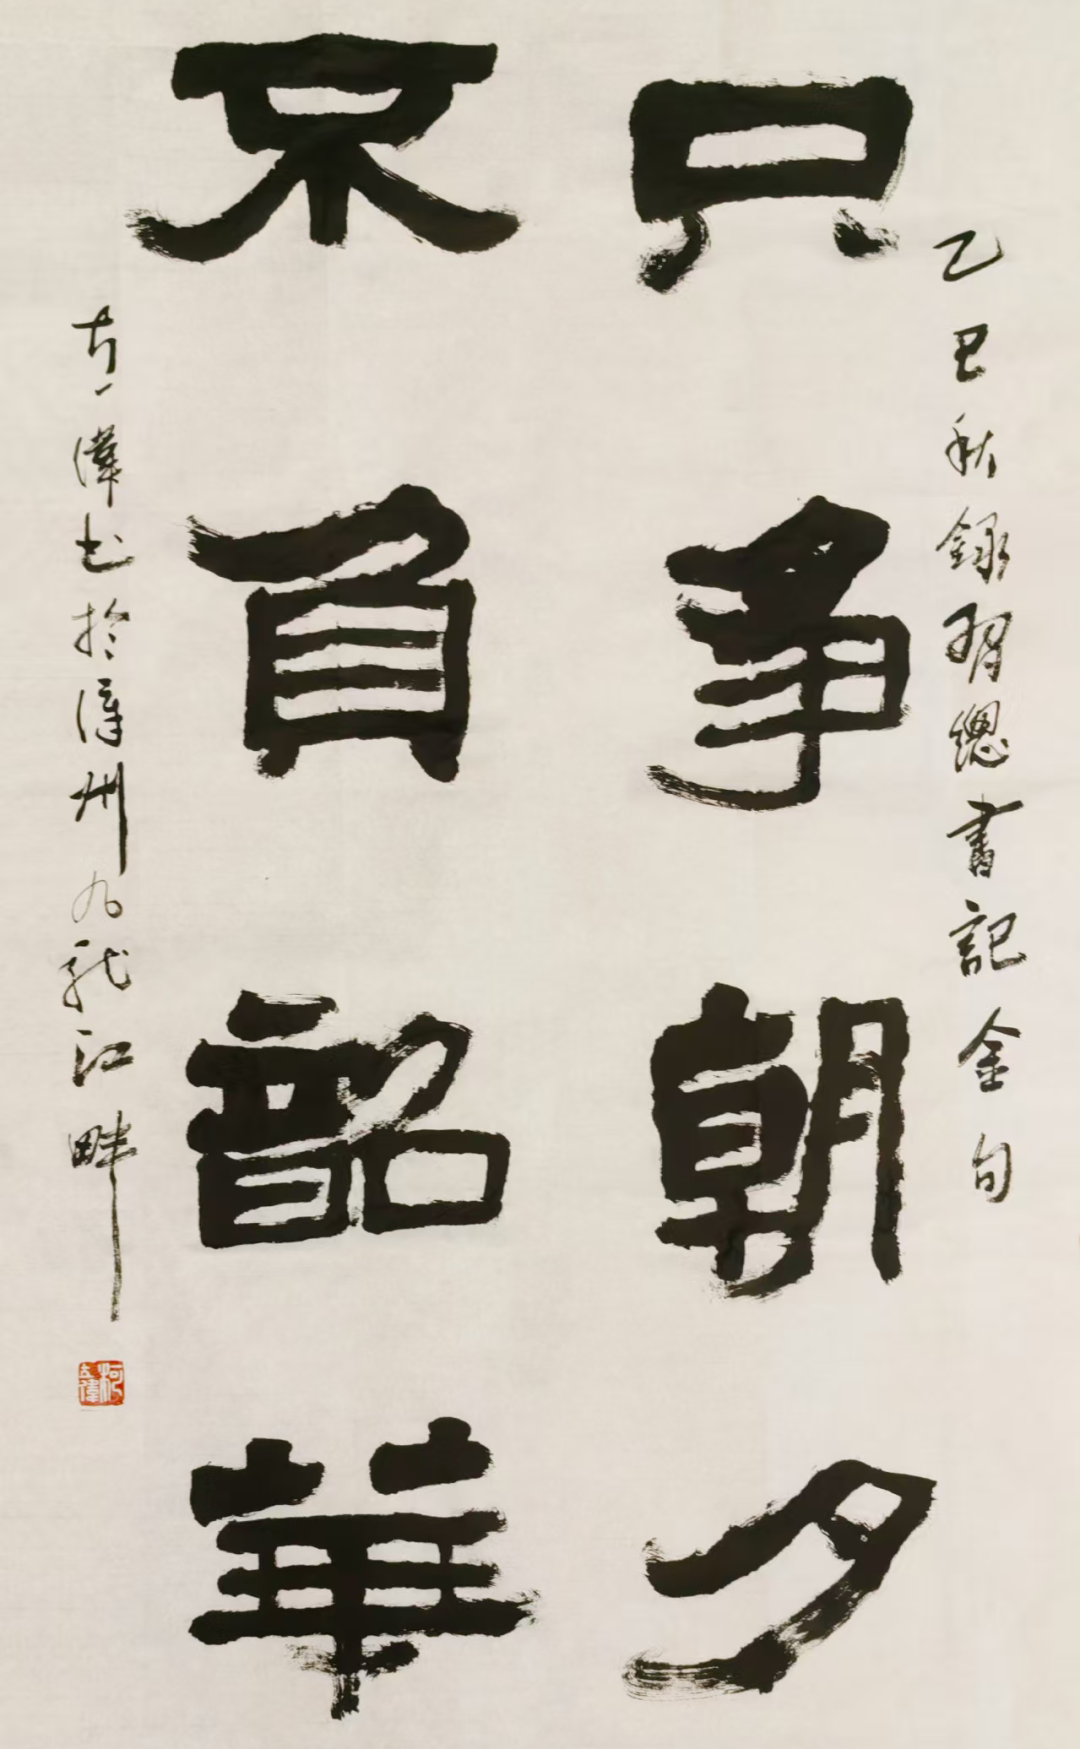 乙巳秋錄習總書記金句
只爭朝夕
不負韶華
偉書於漳州九龍江畔
柯偉